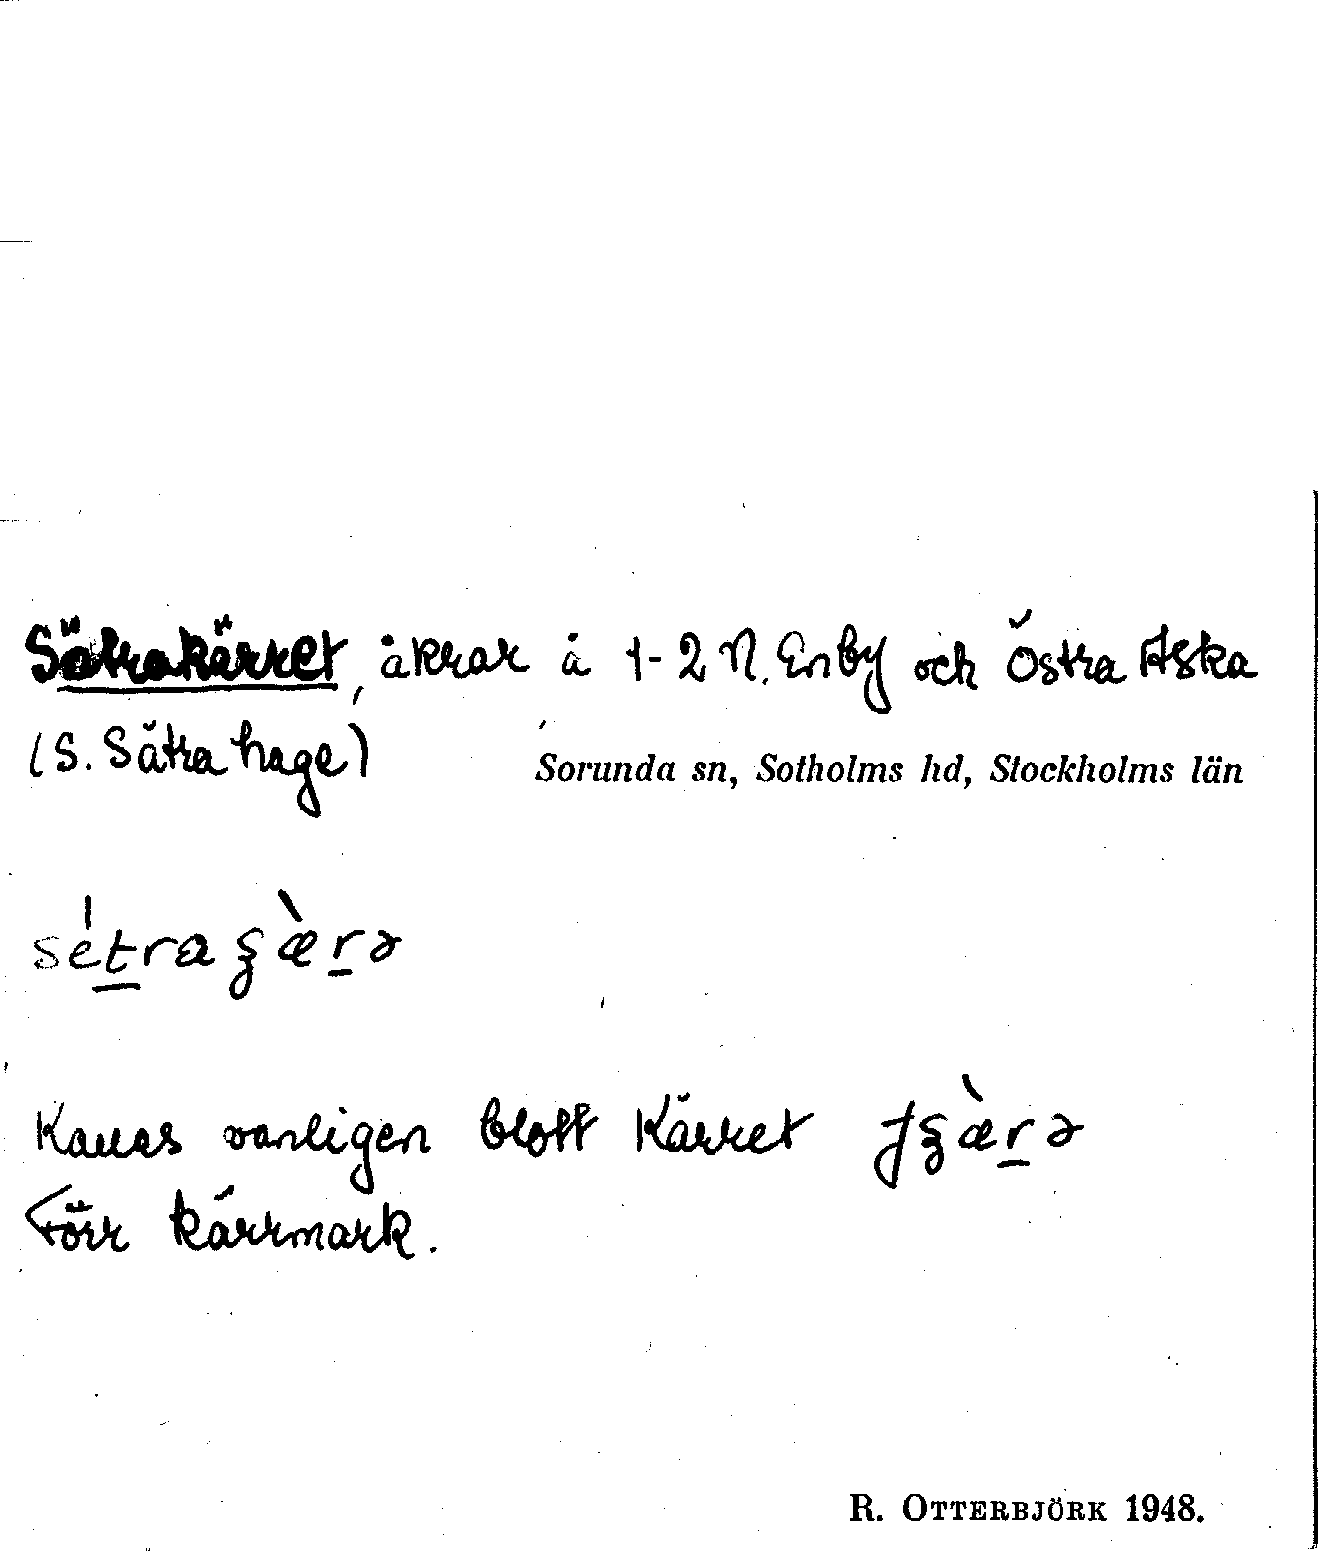 Sätrakärret, åkrar å 1-2 N. Enby och Östra Aska
(S. Sätra hage)
Sorunda sn, Sotholms hd, Stockholms län
Kallas vanligen blott Kärret
Förr kärrmark.
R. OTTERBJÖRK 1948.